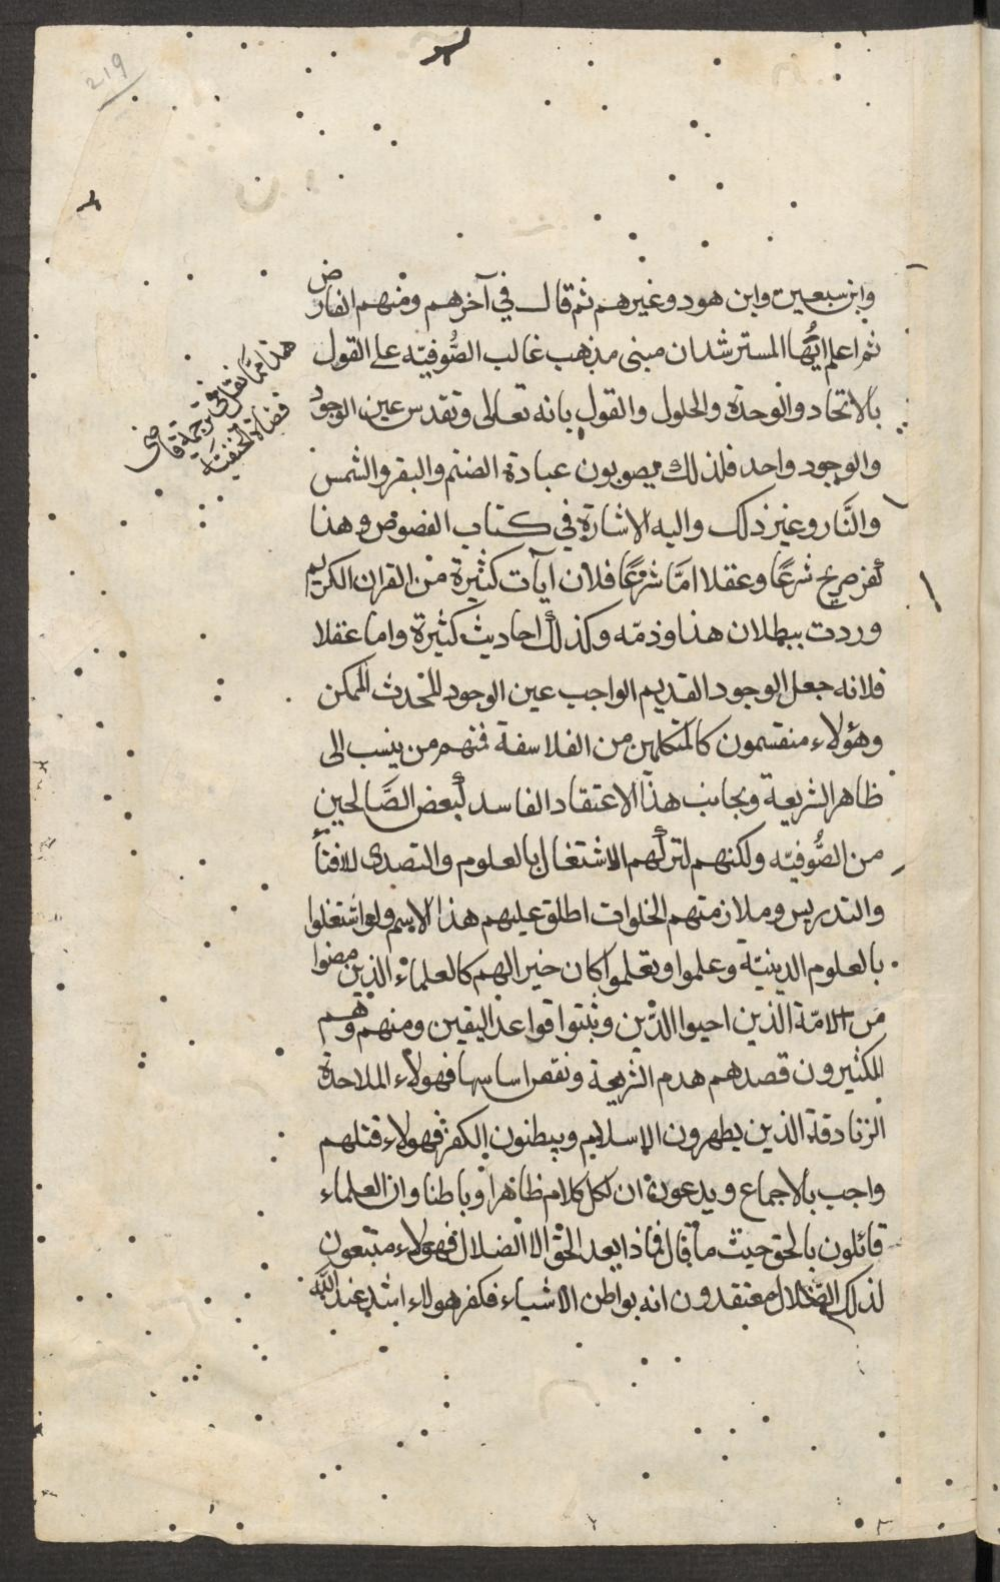 219
وابن سبعين وابن هود وغيرهم ثم قال في آخرهم ومنهم الفارض
ثم اعلم ايُّها المسترشد ان مبنى مذهب غالب الصُّوفيّه على القول
بالاتحاد والوحدة والحلول والقول بانه تعالى وتقدس عين الوجود
والوجود واحد فلذلك يصوبون عبادة الصنم والبقر والشمس
والنَّار وغير ذلك واليه الاشارة في كتاب الفصوص وهذا
كفر صريح شرعًا وعقلا امَّا شرعًا فلان آيات كثيرة من القران الكريم
وردت ببطلان هذا وذمّه وكذلك احاديث كثيرة واما عقلا
فلانه جعل الوجود القديم الواجب عين الوجود المحدث الممكن
وهؤلاء منقسمون كالمتكلمين من الفلاسفة فمنهم من ينسب الى
ظاهر الشريعة ويجانب هذا الاعتقاد الفاسد كبعض الصَّالحين
من الصُّوفيّه ولكنهم لتركهم الاشتغال بالعلوم والتصدى للافتاء
والتدريس وملازمتهم الخلوات اطلق عليهم هذا الاسم ولو اشتغلوا
بالعلوم الدينيّة وعلموا وتعلموا كان خيرا لهم كالعلماء الذين مضوا
من الامّة الذين احيوا الدّين وثبتوا قواعد اليقين ومنهم وهم
الكثيرون قصدهم هدم الشريعة ونقض اساسها فهولاء الملاحدة
الزنادقة الذين يظهرون الاسلام ويبطنون الكفر فهولاء قتلهم
واجب بالاجماع ويدعون ان لكل كلام ظاهرا وباطنا وان العلماء
قائلون بالحق حيث ما قال فماذا بعد الحق الا الضلال فهولاء متبعون
لذلك الضلال معتقدون انه بواطن الاشياء فكفر هولاء اشد عند الله
هذا مما نقل في ترجمة قاضى
قضاة الحنفيّة